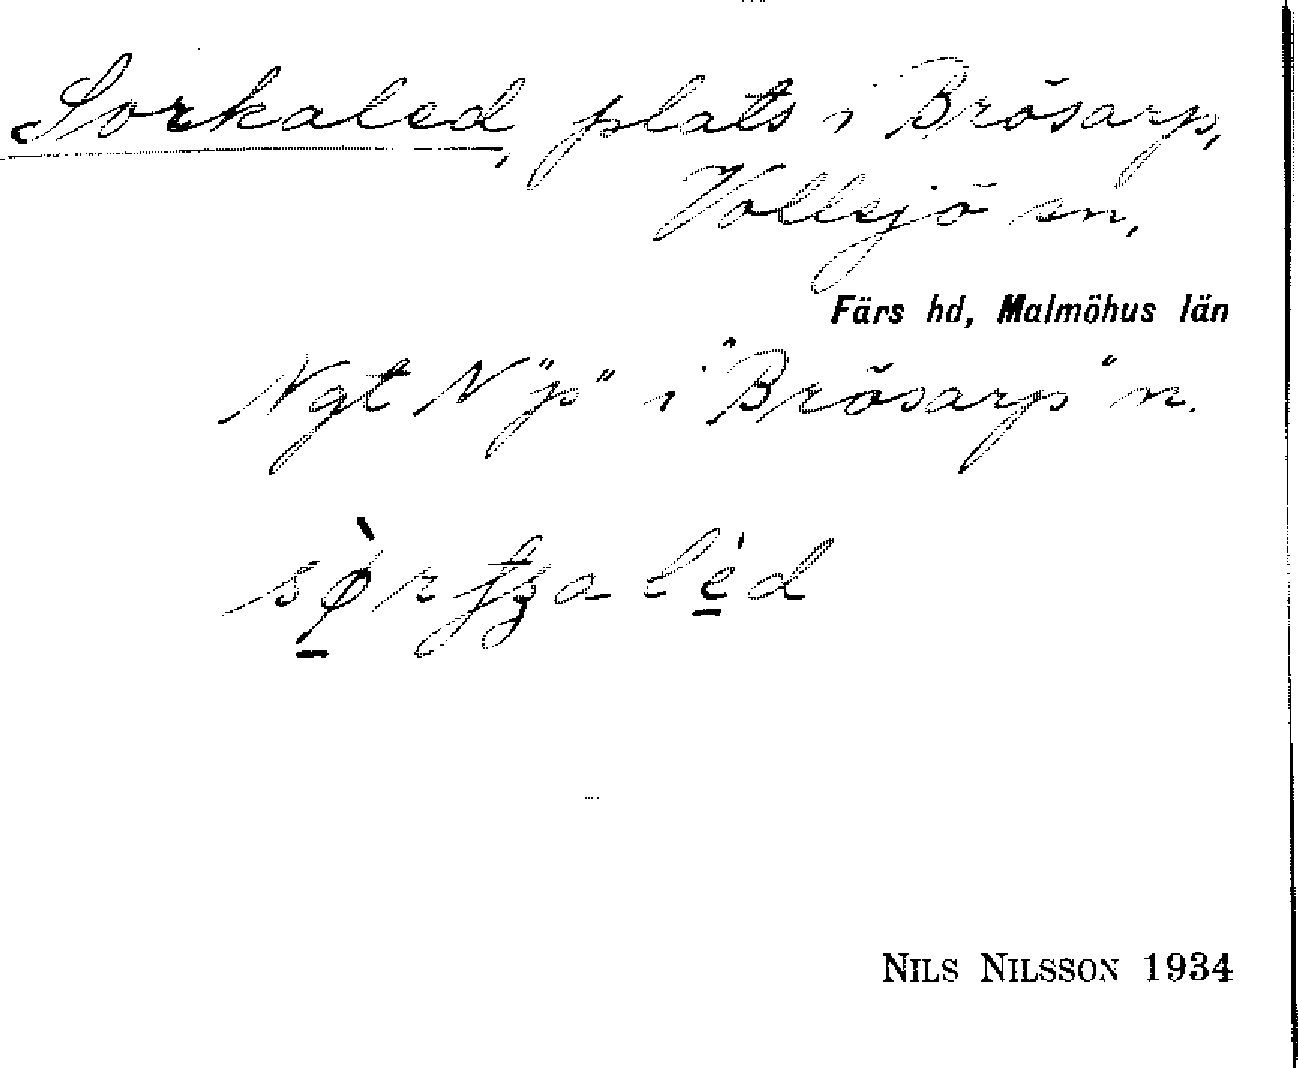 Sorkaled, plats i Brösarp,
Vollsjö sn,
Färs hd, Malmöhus län
Ngt N "p" i "Brösarp" n.
NILS NILSSON 1934